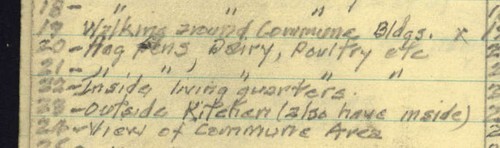 18- " " " "
19 Walking around Commune Bldgs. x
20- Hog Pens, Dairy, Poultry etc
21- " " , " " "
22- Inside living quarters.
23- Outside Kitchen (also have inside)
24- View of Commune Area